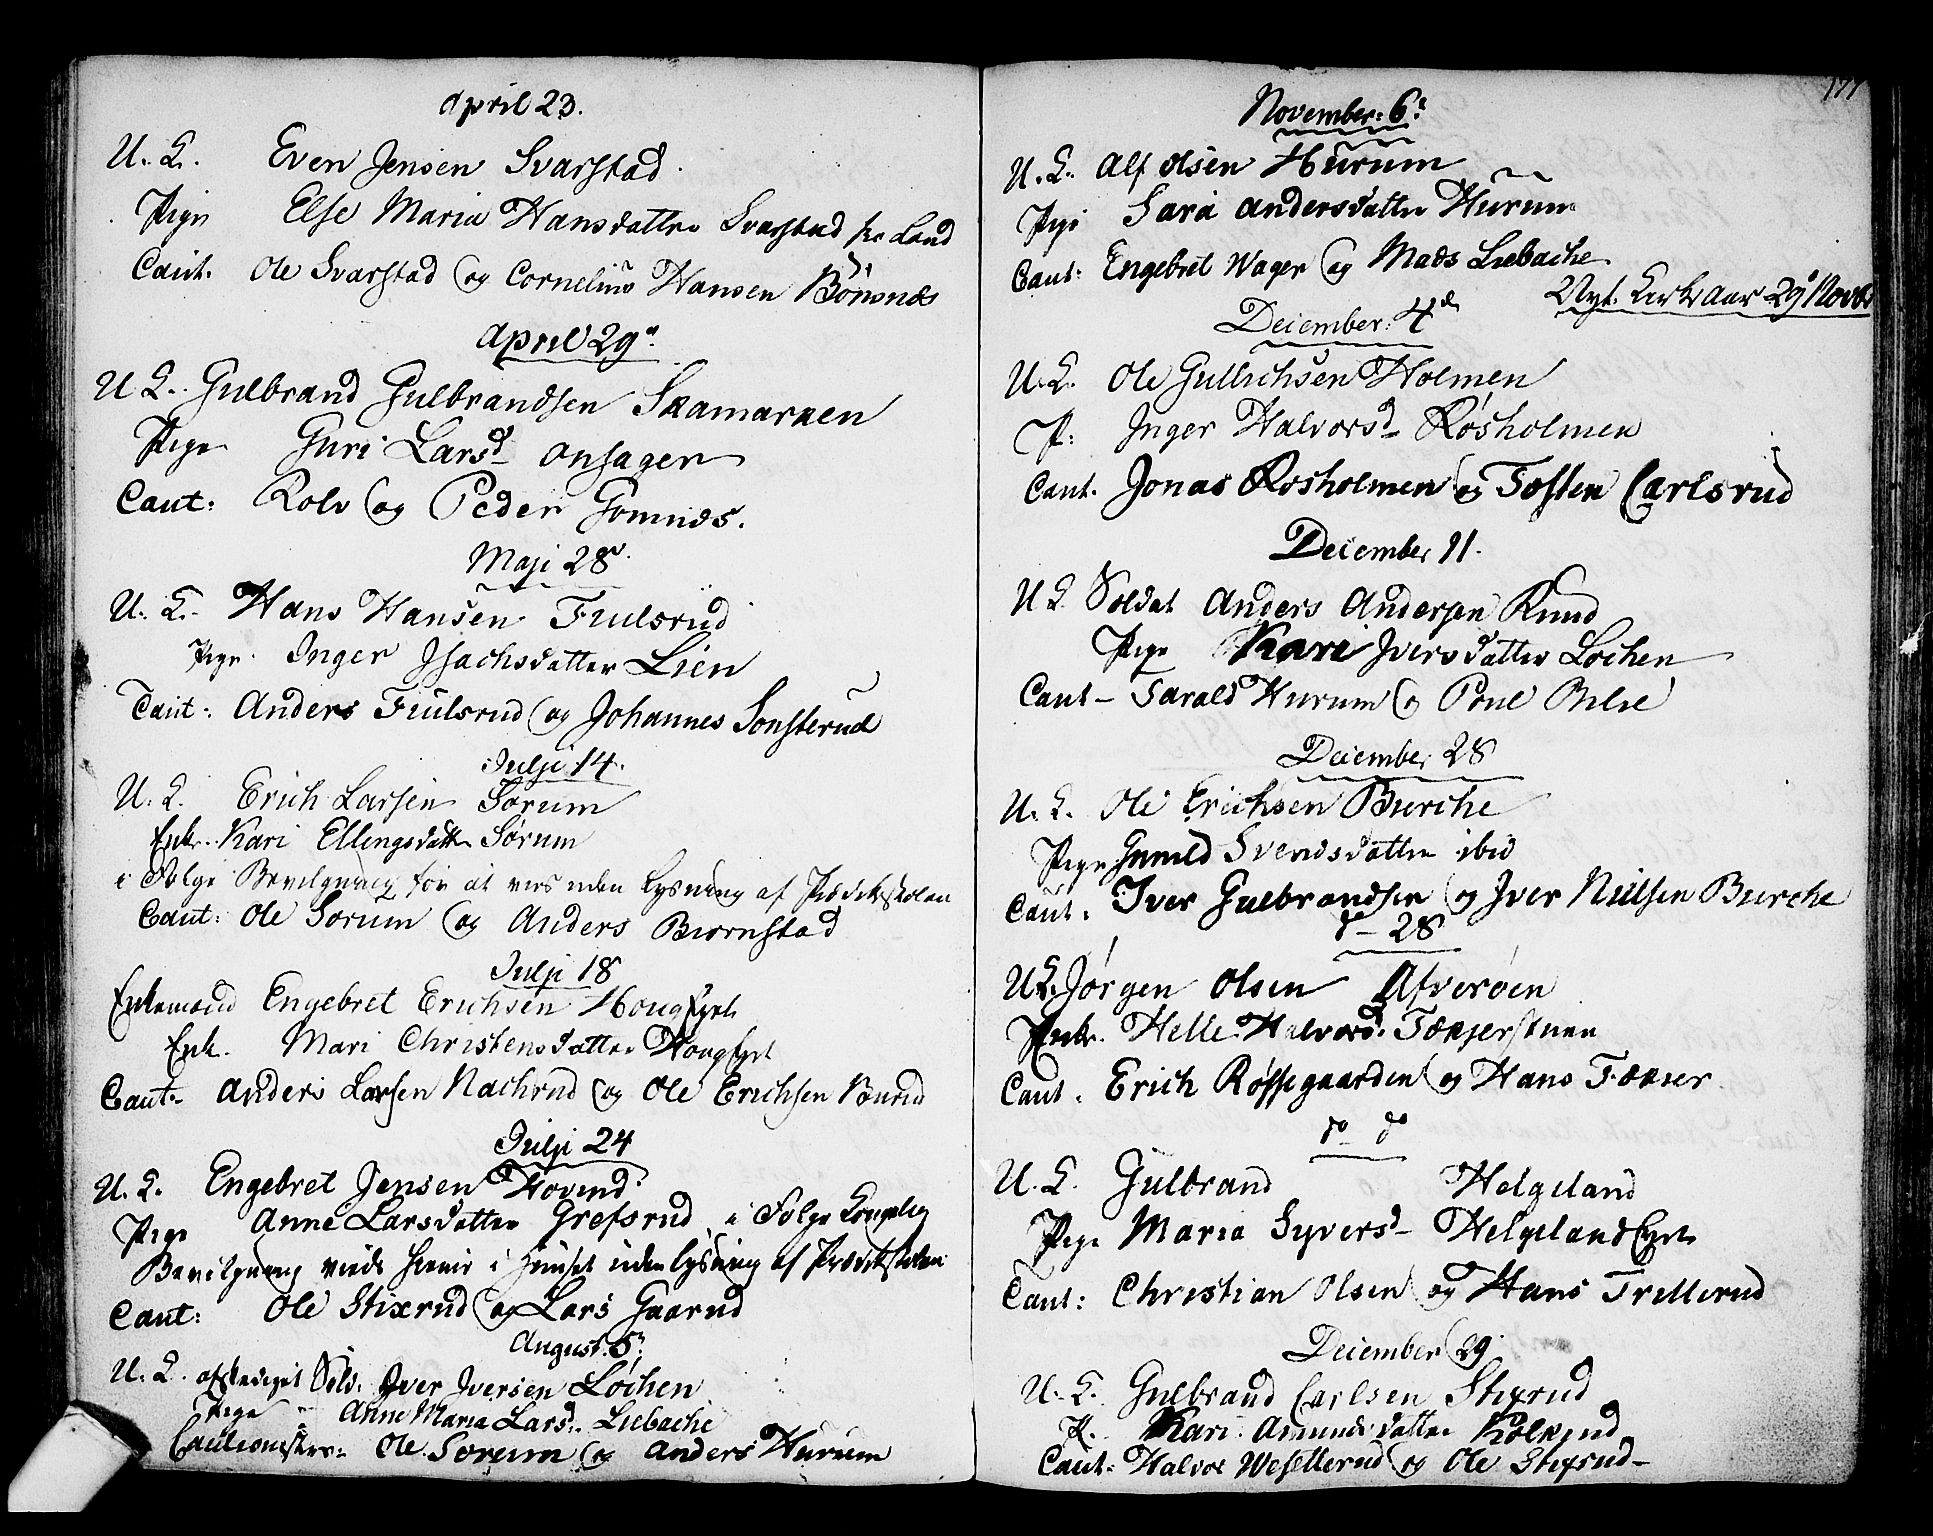 April 23.
U. K. Even Jensen Svarstad.
Pige Else Maria Hansdatter Svarstad Land
Caut. Ole Svarstad og Cornelius Hansen Bönsnæs
April 29.
U K. Gulbrand Gulbrandsen Skamarken
Pige Guri Larsd Onsager
Caut: Rolv og Peder Gomnæs.
Maji 28
U. K. Hans Hansen Fiulsrud
Pige. Inger Isachsdatter Lien
Caut: Anders Fiulsrud og Johannes Sonsterud
Julji 14.
U. K. Erich Larsen Sørum
Enke. Kari Ellingsdatter Sørum
i Følge Bevilgning for at vies uden Lysning af Prædikestolen
Caut: Ole Sørum og Anders Biørnstad
Julji 18
Enkemand Engebret Erichsen Hougseyet
Enk. Mari Christensdatter Hougeyet
Caut. Anders Larsen Nachrud og Ole Erichsen
Julji 24
U. K. Engebret Jensen Hovend
Pige Anne Larsdatter Grefsrud i Følge Kongelig
Bevilgning viede hiemme i Huuset uden lysning af Prædikestolen
Caut: Ole Stixrud og Lars Gaarud
August. 5.
U. K. afskediget Sold. Iver Iversen Løchen
Pige Anne Maria Larsd. Liebache
Cautionister: Ole Sorum og Anders Hurum
177
November: 6.
U. K. Alf Olsen Hurum
Pige Sara Andersdatter Hurum
Caut: Engebret Wager og Mads Liebache
Nyt. Kirke aar 29 Novbr
Deiember: 4
U. K. Ole Gullichsen Holmen
P: Inger Halvorsd Røsholmen
Caut. Jonas Røsholmen og Tosten Carlsrud
Deiember 11.
U K Soldat Anders Andersen Rund
Pige Kari Iversdatter Lochen
Caut Harald Hurum og Poul Bilie
Deiember 28
U. K. Ole Erichsen Burche
Pige Gunild Svendsdatter ibid
Caut. Iver Gulbrandsen og Iver Nielsen Burche
d 28
U K. Jørgen Olsen Afverøen
Enke. Helle Halvord. Tæxerstuen
Caut. Erich Røssegaarden og Hans Tæxser
do do
U. K. Gulbrand Helgeland
Pige Maria Syversd Helgeland Eyet
Caut: Christian Olsen og Hans Trillerud
Deiember 29
U. K. Gulbrand Carlsen Stixrud
P. Kari Amundsdatter
Caut: Halvor Wesetterud og Ole Stixrud